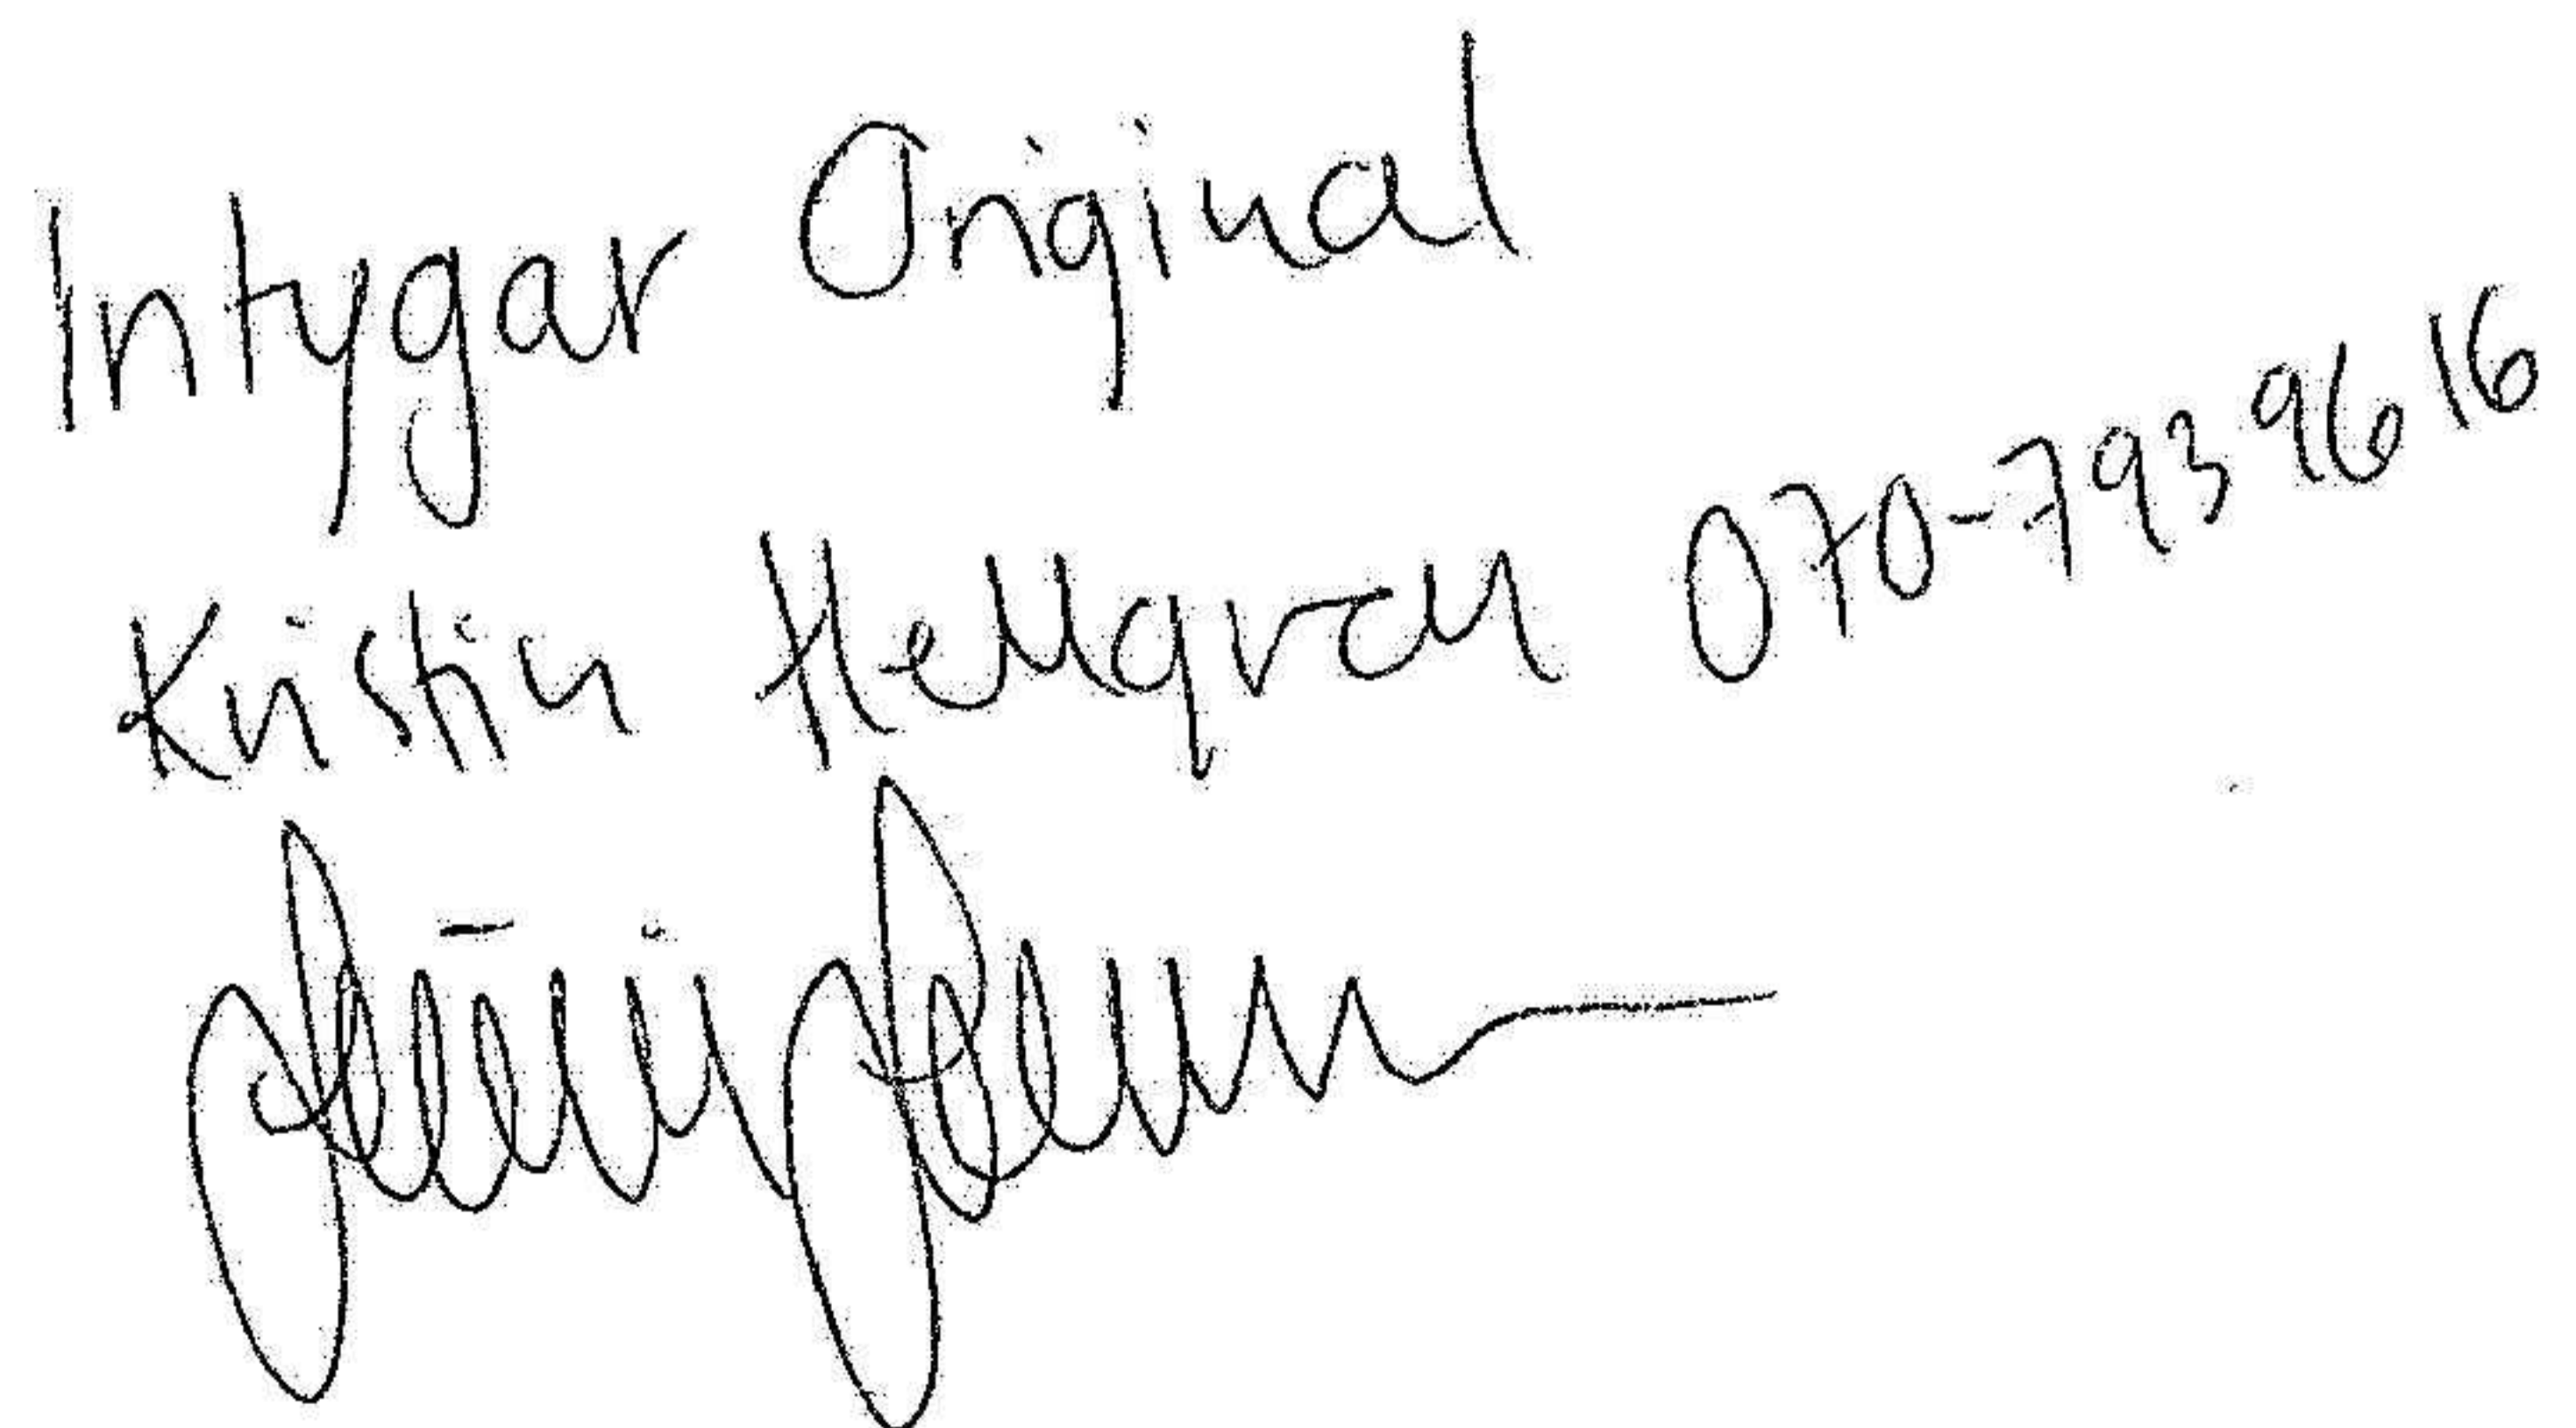 Intygar Original
Kristin Hellgren 070-793 96 16